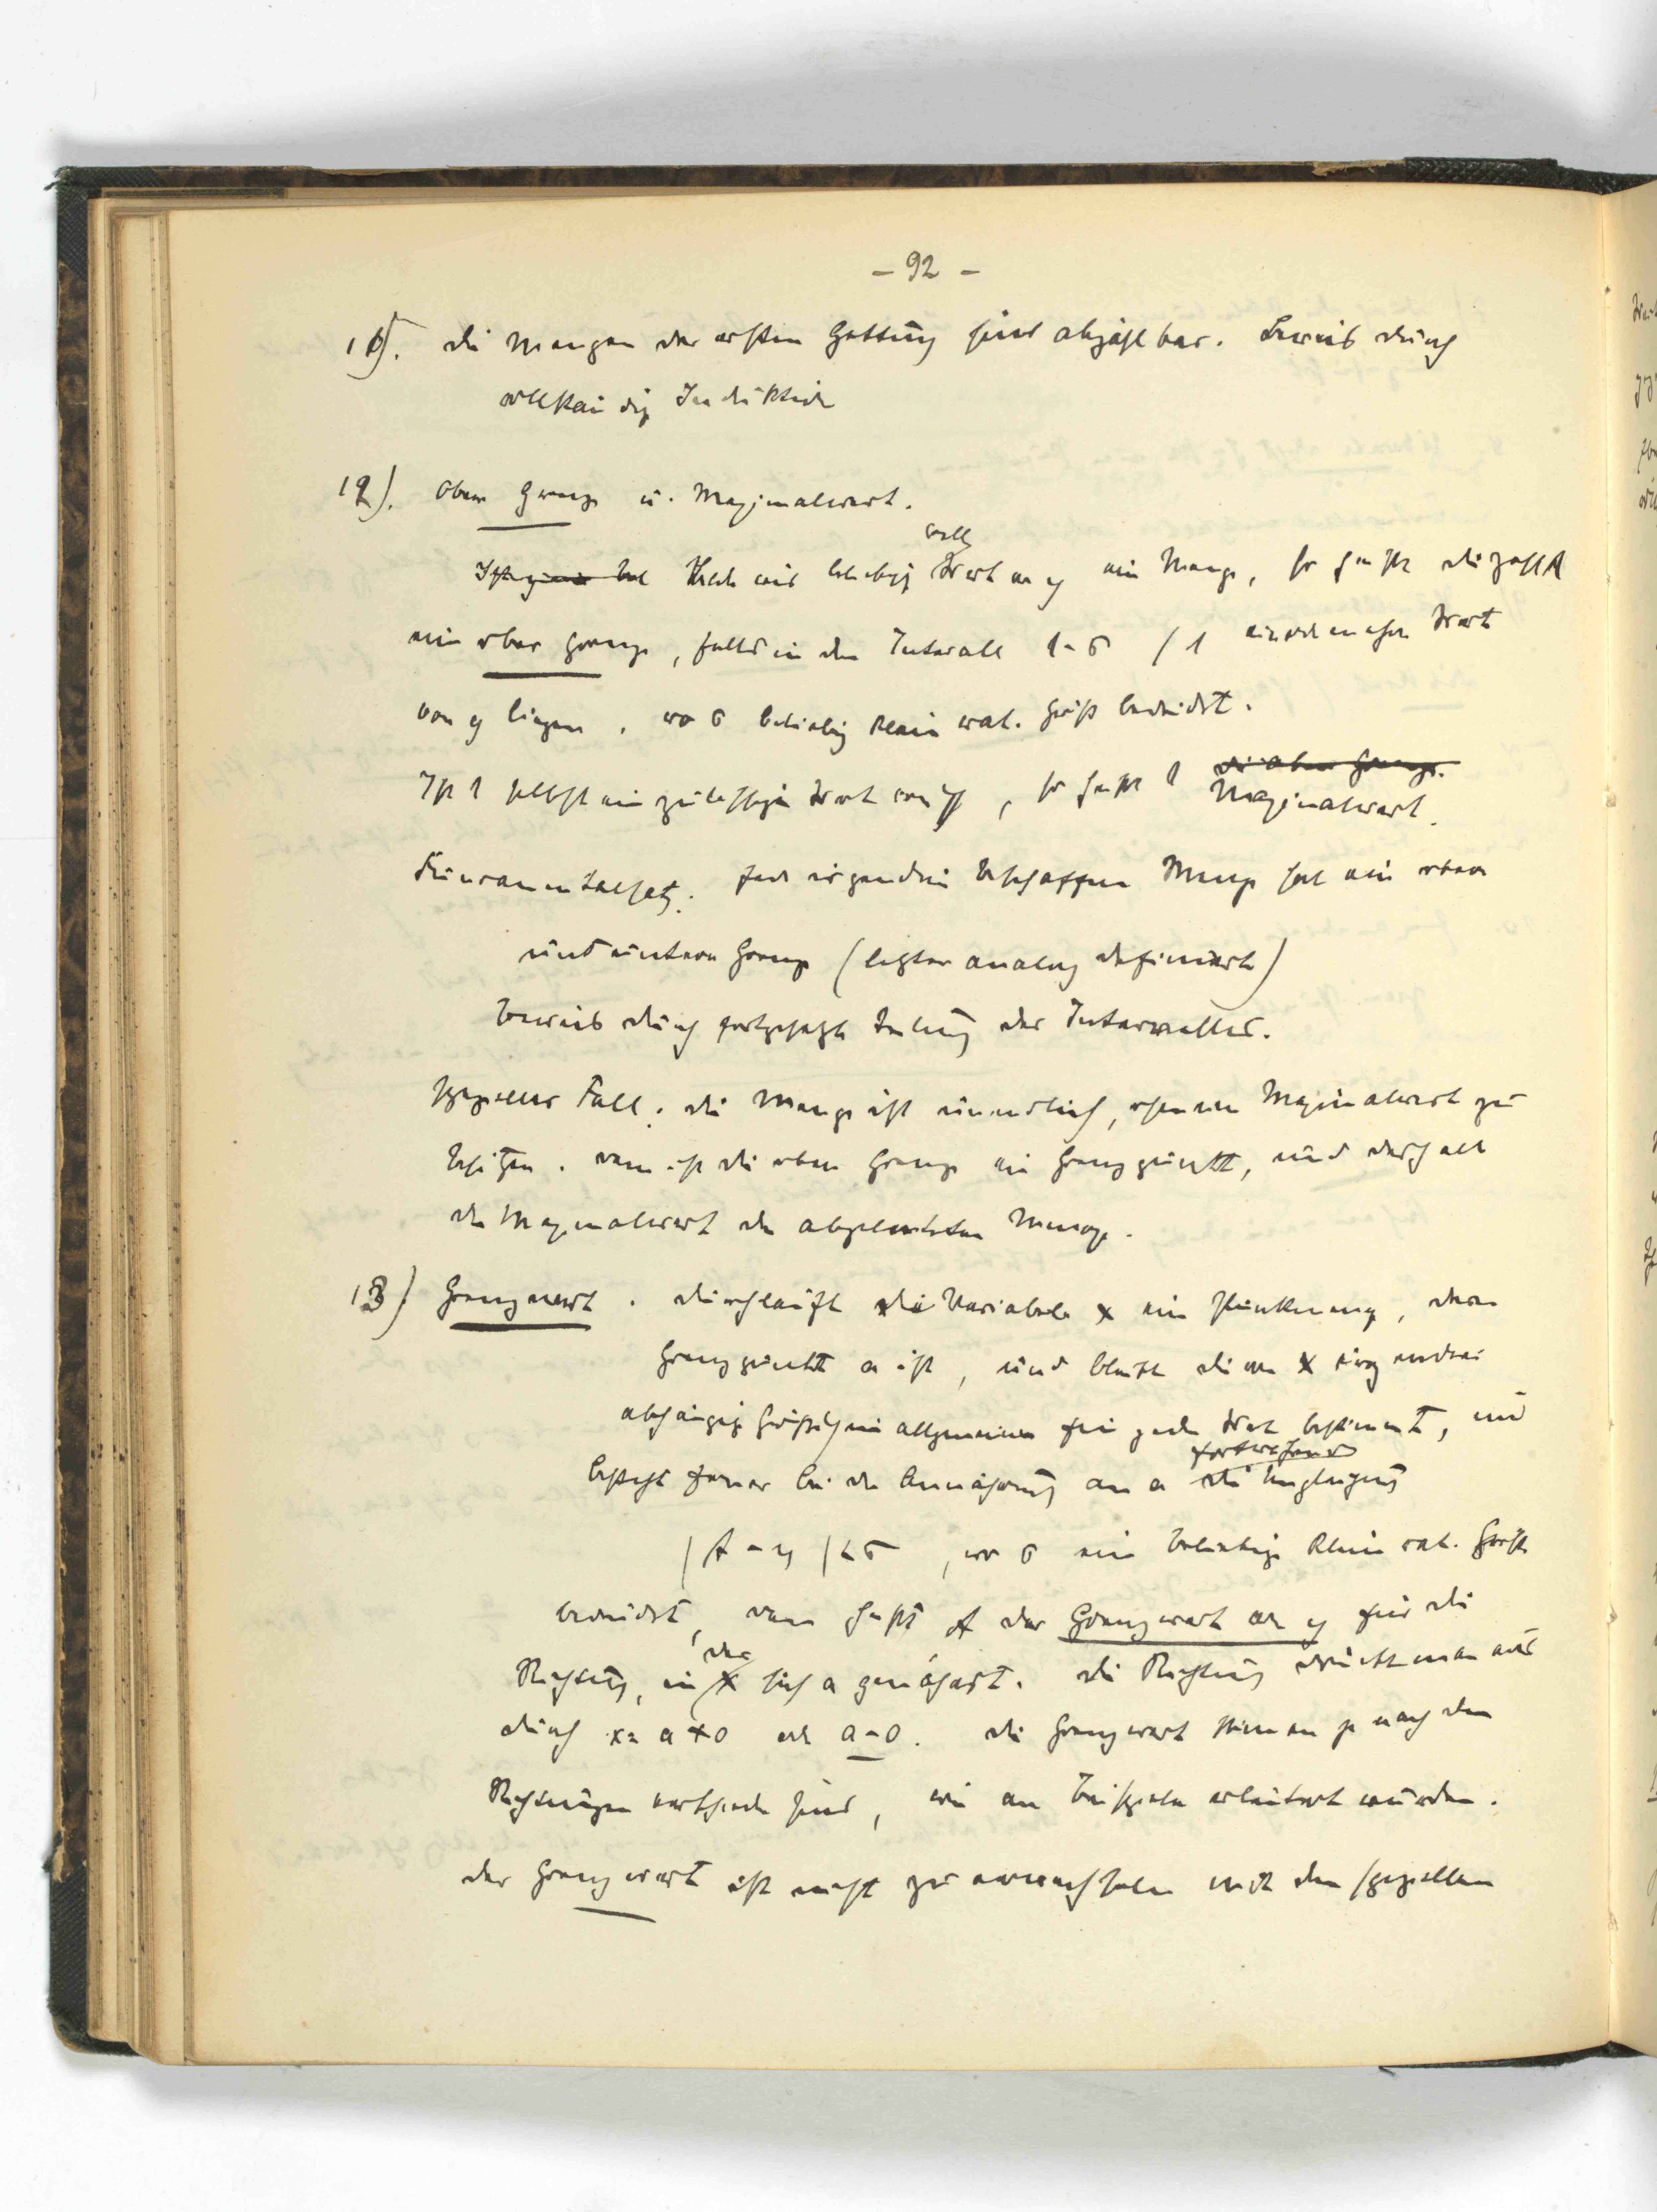 - 92 -
11). Die Mengen der ersten Gattung sind abzählbar. Beweis durch
vollständige Induktion
12). Obere Grenze u. Maximalwert.
Werte von y eine Menge, so heißt die Zahl l
eine obere Grenze, falls in dem Intervall l-σ / l Werte
von y liegen, wo σ beliebig kleine rat. Größe bedeutet.
Ist l selbst ein zulässiger Wert von y, so heißt l die obere Grenze. Maximalwert.
Fundamentalsatz: Jede irgendwie beschaffene Menge hat eine obere
und untere Grenze (letztere analog definiert)
Beweis durch fortgesetzte Teilung des Intervalles.
Spezieller Fall: die Menge ist unendlich, ohne einen Maximalwert zu
besitzen. Dann ist die obere Grenze ein Grenzpunkt, und deshalb
der Maximalwert der abgeleiteten Menge.
13) Grenzwert. Durchläuft die Variabele x eine Punktmenge, deren
Grenzpunkt a ist, und bleibt die von x irgendwie
abhängige Größe y im allgemeinen für jeden Wert bestimmt, und
besteht ferner bei der Annäherung an a fortwährend die Ungleichung
|A - y| < σ, wo σ eine beliebige kleine rat. Größe
bedeutet, dann heißt A der Grenzwert von y für die
Richtung, in der x sich a genähert. Die Richtung drückt man aus
durch x = a+0 oder a-0. Die Grenzwerte können je nach den
Richtungen verschieden sind, wie an Beispielen erläutert wurden.
Der Grenzwert ist nicht zu verwechseln mit dem speziellen